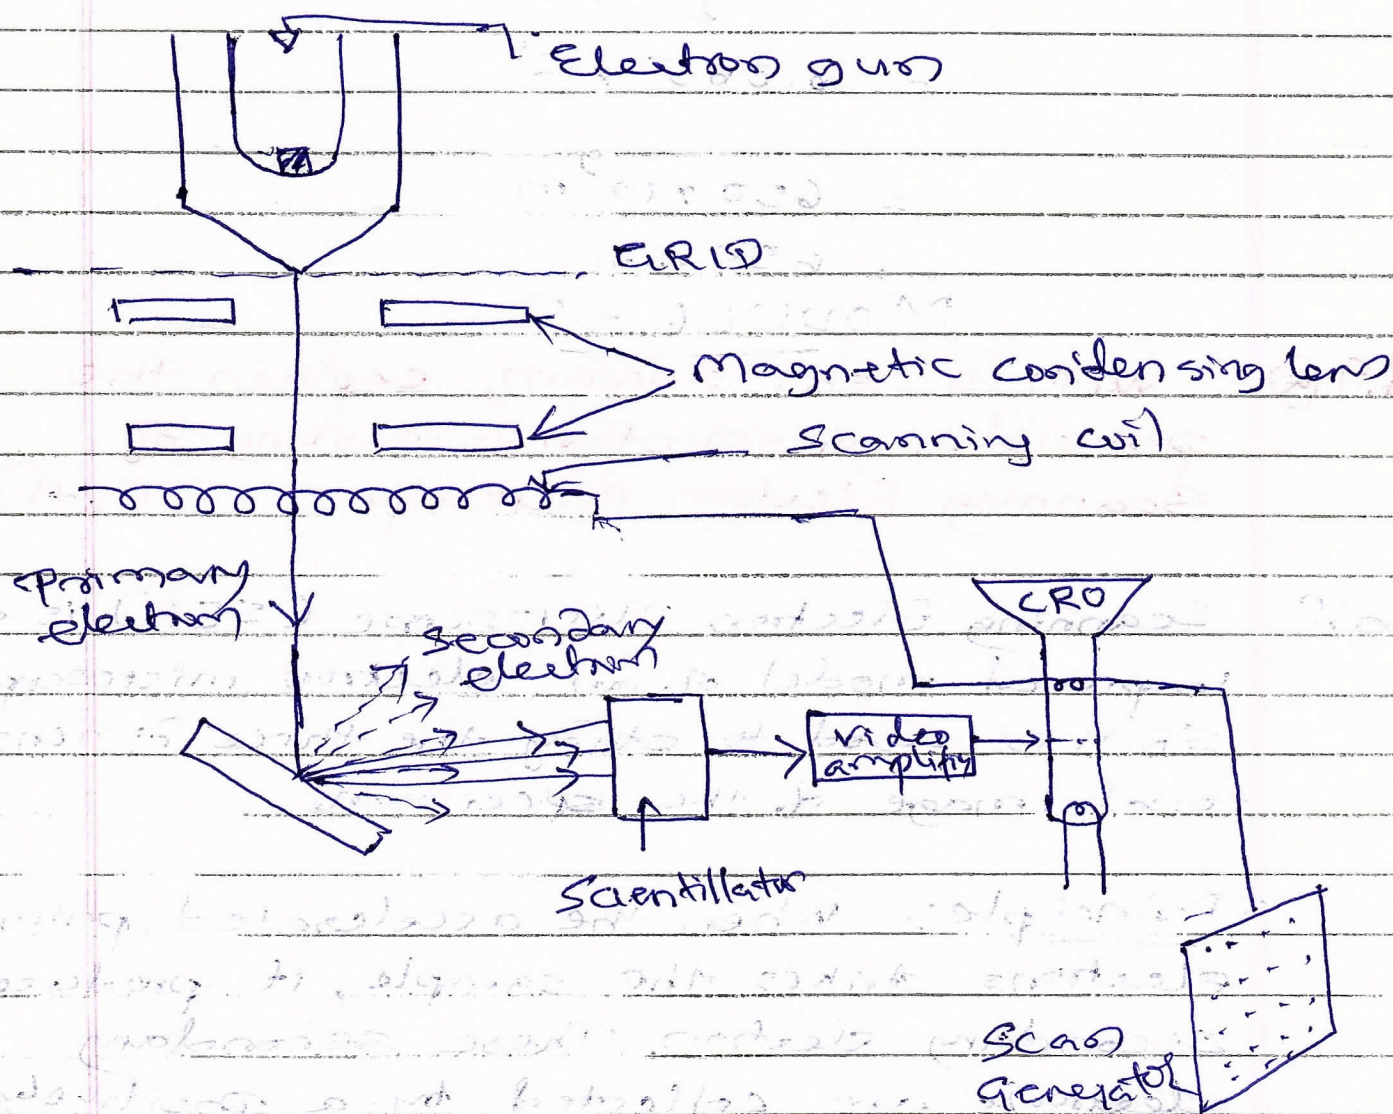 Electron gun
GRID
Magnetic condensing lens
Scanning coil
Primary
electron
Secondary
electron
CRO
Video
amplifiy
Scentillator
Scan
Generator